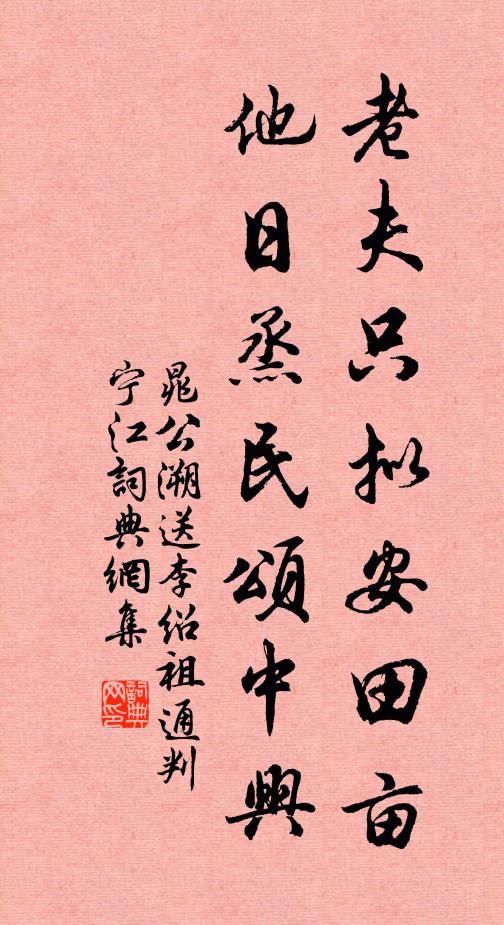 老夫只拟安田亩
他日烝民頌中興
晁公溯送李绍祖通判
宁江詞典網集
詞典网印